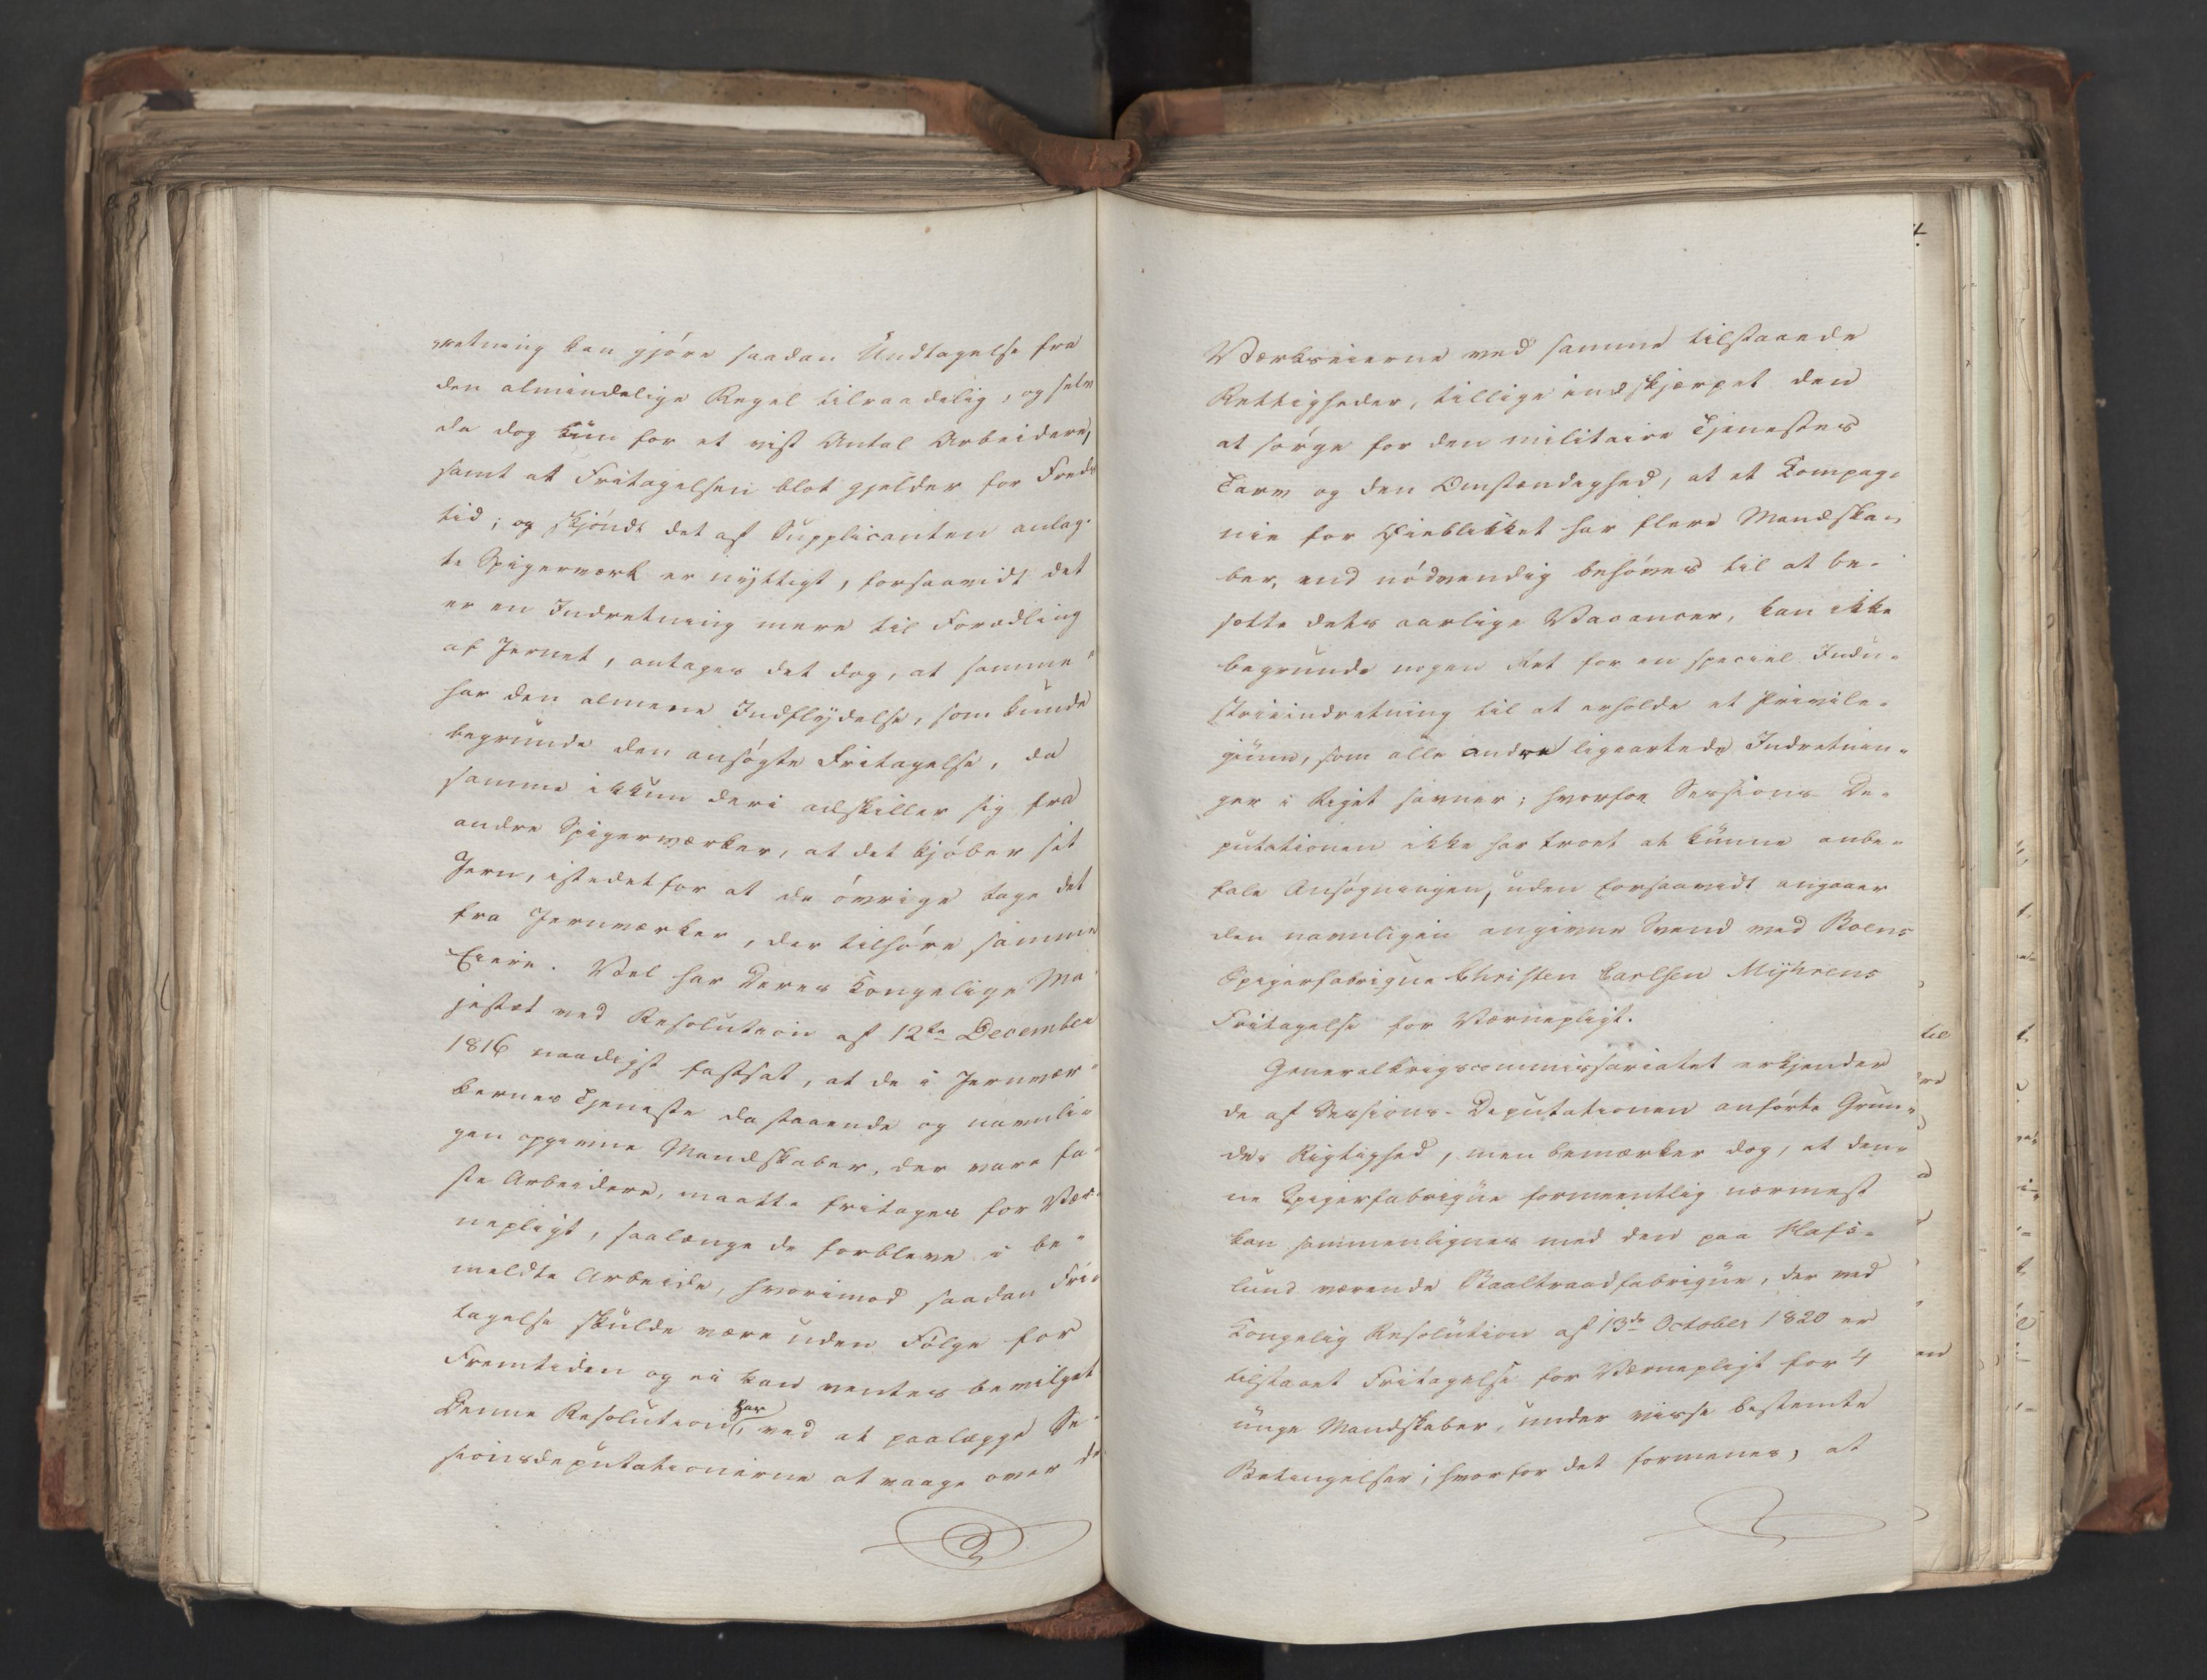 retning kan gjöre saadan Undtagelse fra
den almindelige Regel tilraadelig, og selv
da dog kun for et vist Antal Arbeidere,
samt at Fritagelsen blot gjelder for Freds
tid; og skjöndt det af Supplicanten anlag-
te Spigerværk er nyttigt, forsaavidt det
er en Indretning mere til Forædling
af Jernet, antages det dog, at samme
har den almene Indflydelse, som kunde
begrunde den ansögte Fritagelse, da
samme ikkun deri adskiller sig fra
andre Spigerværker, at det kjöber sit
Jern, istedetfor at de övrige tage det
fra Jernværker, der tilhöre samme
Eiere. Vel har Deres Kongelige Ma-
jestæt ved Resolution af 12te December
1816 naadigst fastsat, at de i Jernvær-
kernes Tjeneste dastaaende og navnli-
gen opgivne Mandskaber, der vare fa-
ste Arbeidere, maatte fritages for Vær-
nepligt, saalænge de forbleve i be-
meldte Arbeide, hvorimod saadan Fri-
tagelse skulde være uden Fölge for
Fremtiden og ei kan ventes bevilget
Denne Resolution har, ved at paalægge Se-
sionsdeputationerne at vaage over de
Værkseierne ved samme tilstaaede
Rettigheder, tillige indskjærpet den
at sörge for den militaire Tjenestes
Tarv og den Omstændighed, at et Kompag-
nie for Öieblikket har flere Mandska-
ber, end nödvendig behöves til at be-
sætte dets aarlige Vacancer, kan ikke
begrunde nogen Ret for en speciel Indu-
strieindretning til at erholde et Privile-
gium, som alle andre ligeartede Indretnin-
ger i Riget savner; hvorfor Sessions De-
putationen ikke har troet at kunne anbe-
fale Ansögningen, uden forsaavidt angaaer
den navnligen angivne Svend ved Boens
Spigerfabrique Christen Carlsen Myhrens
Fritagelse for Værnepligt.
Generalkrigscommissariatet erkjender
de af Sessions-Deputationen anförte Grun-
des Rigtighed, men bemærker dog, at den-
ne Spigerfabrique formeentlig nærmest
kan sammenlignes med den paa Hafs-
lund værende Staaltraadfabrique, der ved
Kongelig Resolution af 13de October 1820 er
tilstaaet Fritagelse for Værnepligt for 4
unge Mandskaber, under visse bestemte
Betingelser; hvorfor det formenes, at